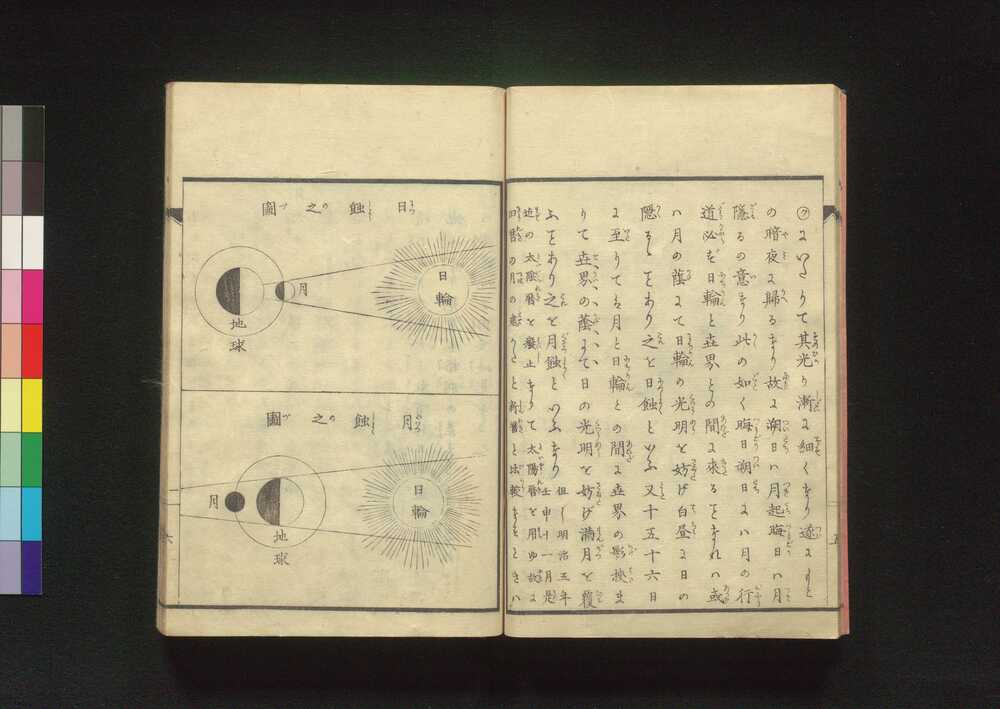 ㋗にいたりて其光り漸に細くなり遂にもと
の暗夜に歸るなり故に朔日ハ月起晦日ハ月
隠るの意なり此の如く晦日朔日にハ月の行
道必を日輪と世界との間に來るをなれハ或
ハ月の蔭にて日輪の光明を妨げ白昼に日の
隠るゝことあり之を日蝕といふ又十五十六日
に至りてハ月と日輪との間に世界の
りて世界の蔭にて日の光明を妨げ満月を覆
ふことあり之を月蝕といふなり
但し明治五年
壬申十一月是
迄の太陰暦を廢止なりて太陽暦を用ゆ故に
旧暦の月の と新暦と比較するときハ
五
日蝕之圖
日輪
月
地球
月蝕之圖
日輪
地球
月
六